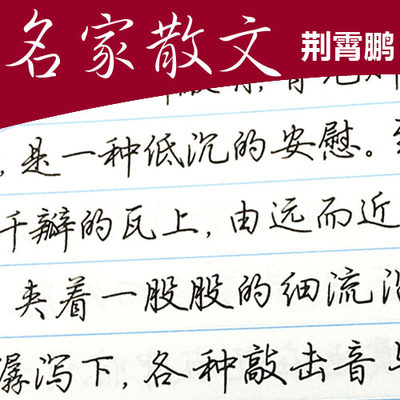 名家散文 荆霄鹏
，是一种低沉的安慰。
千瓣的瓦上，由远而近
夹着一股股的细流沿
潺泻下，各种敲击音与